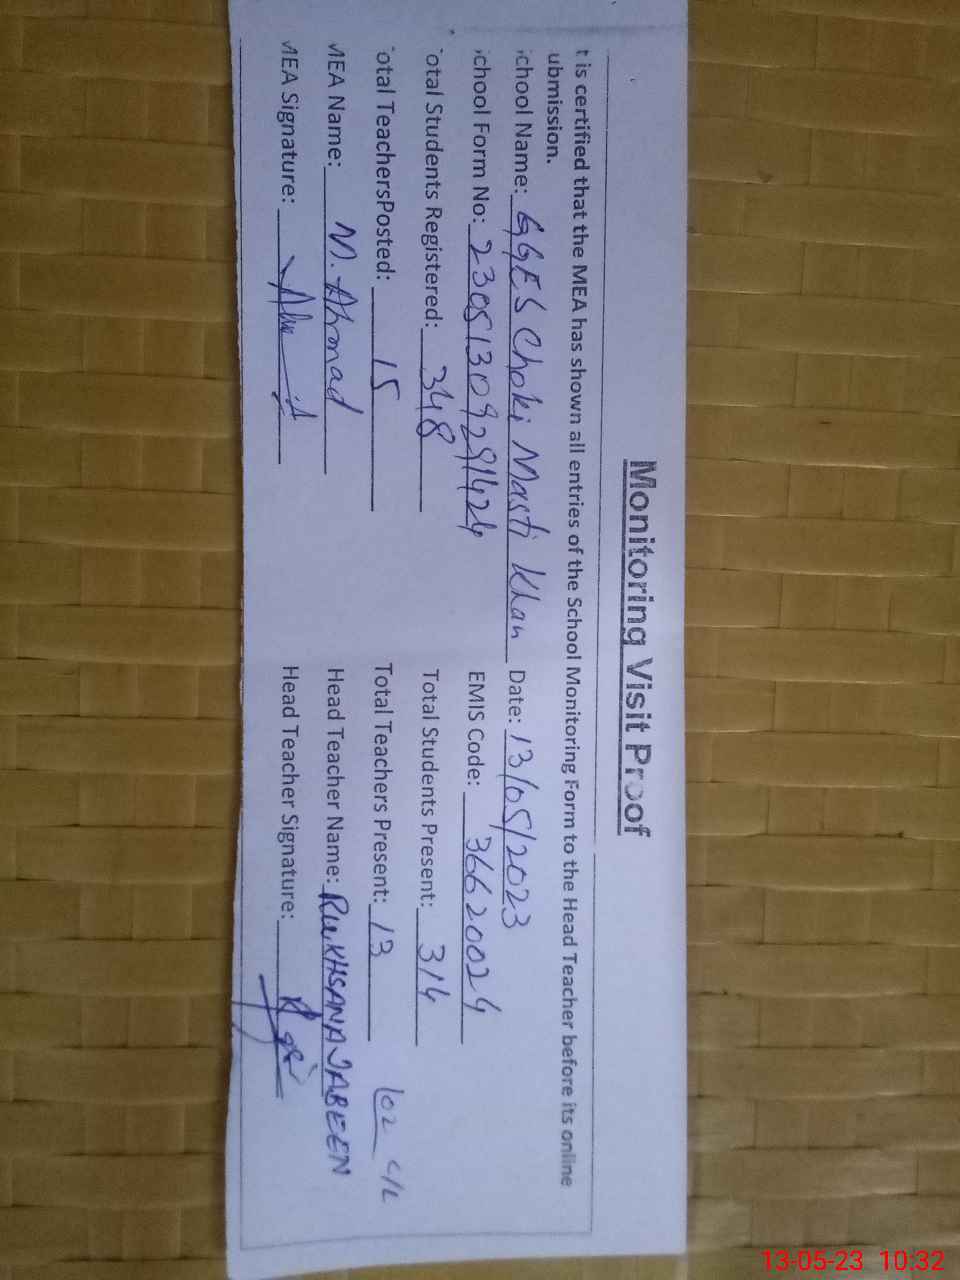 Monitoring Visit Proof
t is certified that the MEA has shown all entries of the School Monitoring Form to the Head Teacher before its online
ubmission.
chool Name: GGES Choki Masti Khan Date: 13/05/2023
chool Form No: 23051309291424 EMIS Code: 36620024
otal Students Registered: 348 Total Students Present: 314
otal TeachersPosted: 15 Total Teachers Present: 13 02 C/L
MEA Name: M. Ahmad Head Teacher Name: RUKHSANA JABEEN
MEA Signature: Head Teacher Signature:
13-05-23 10:32